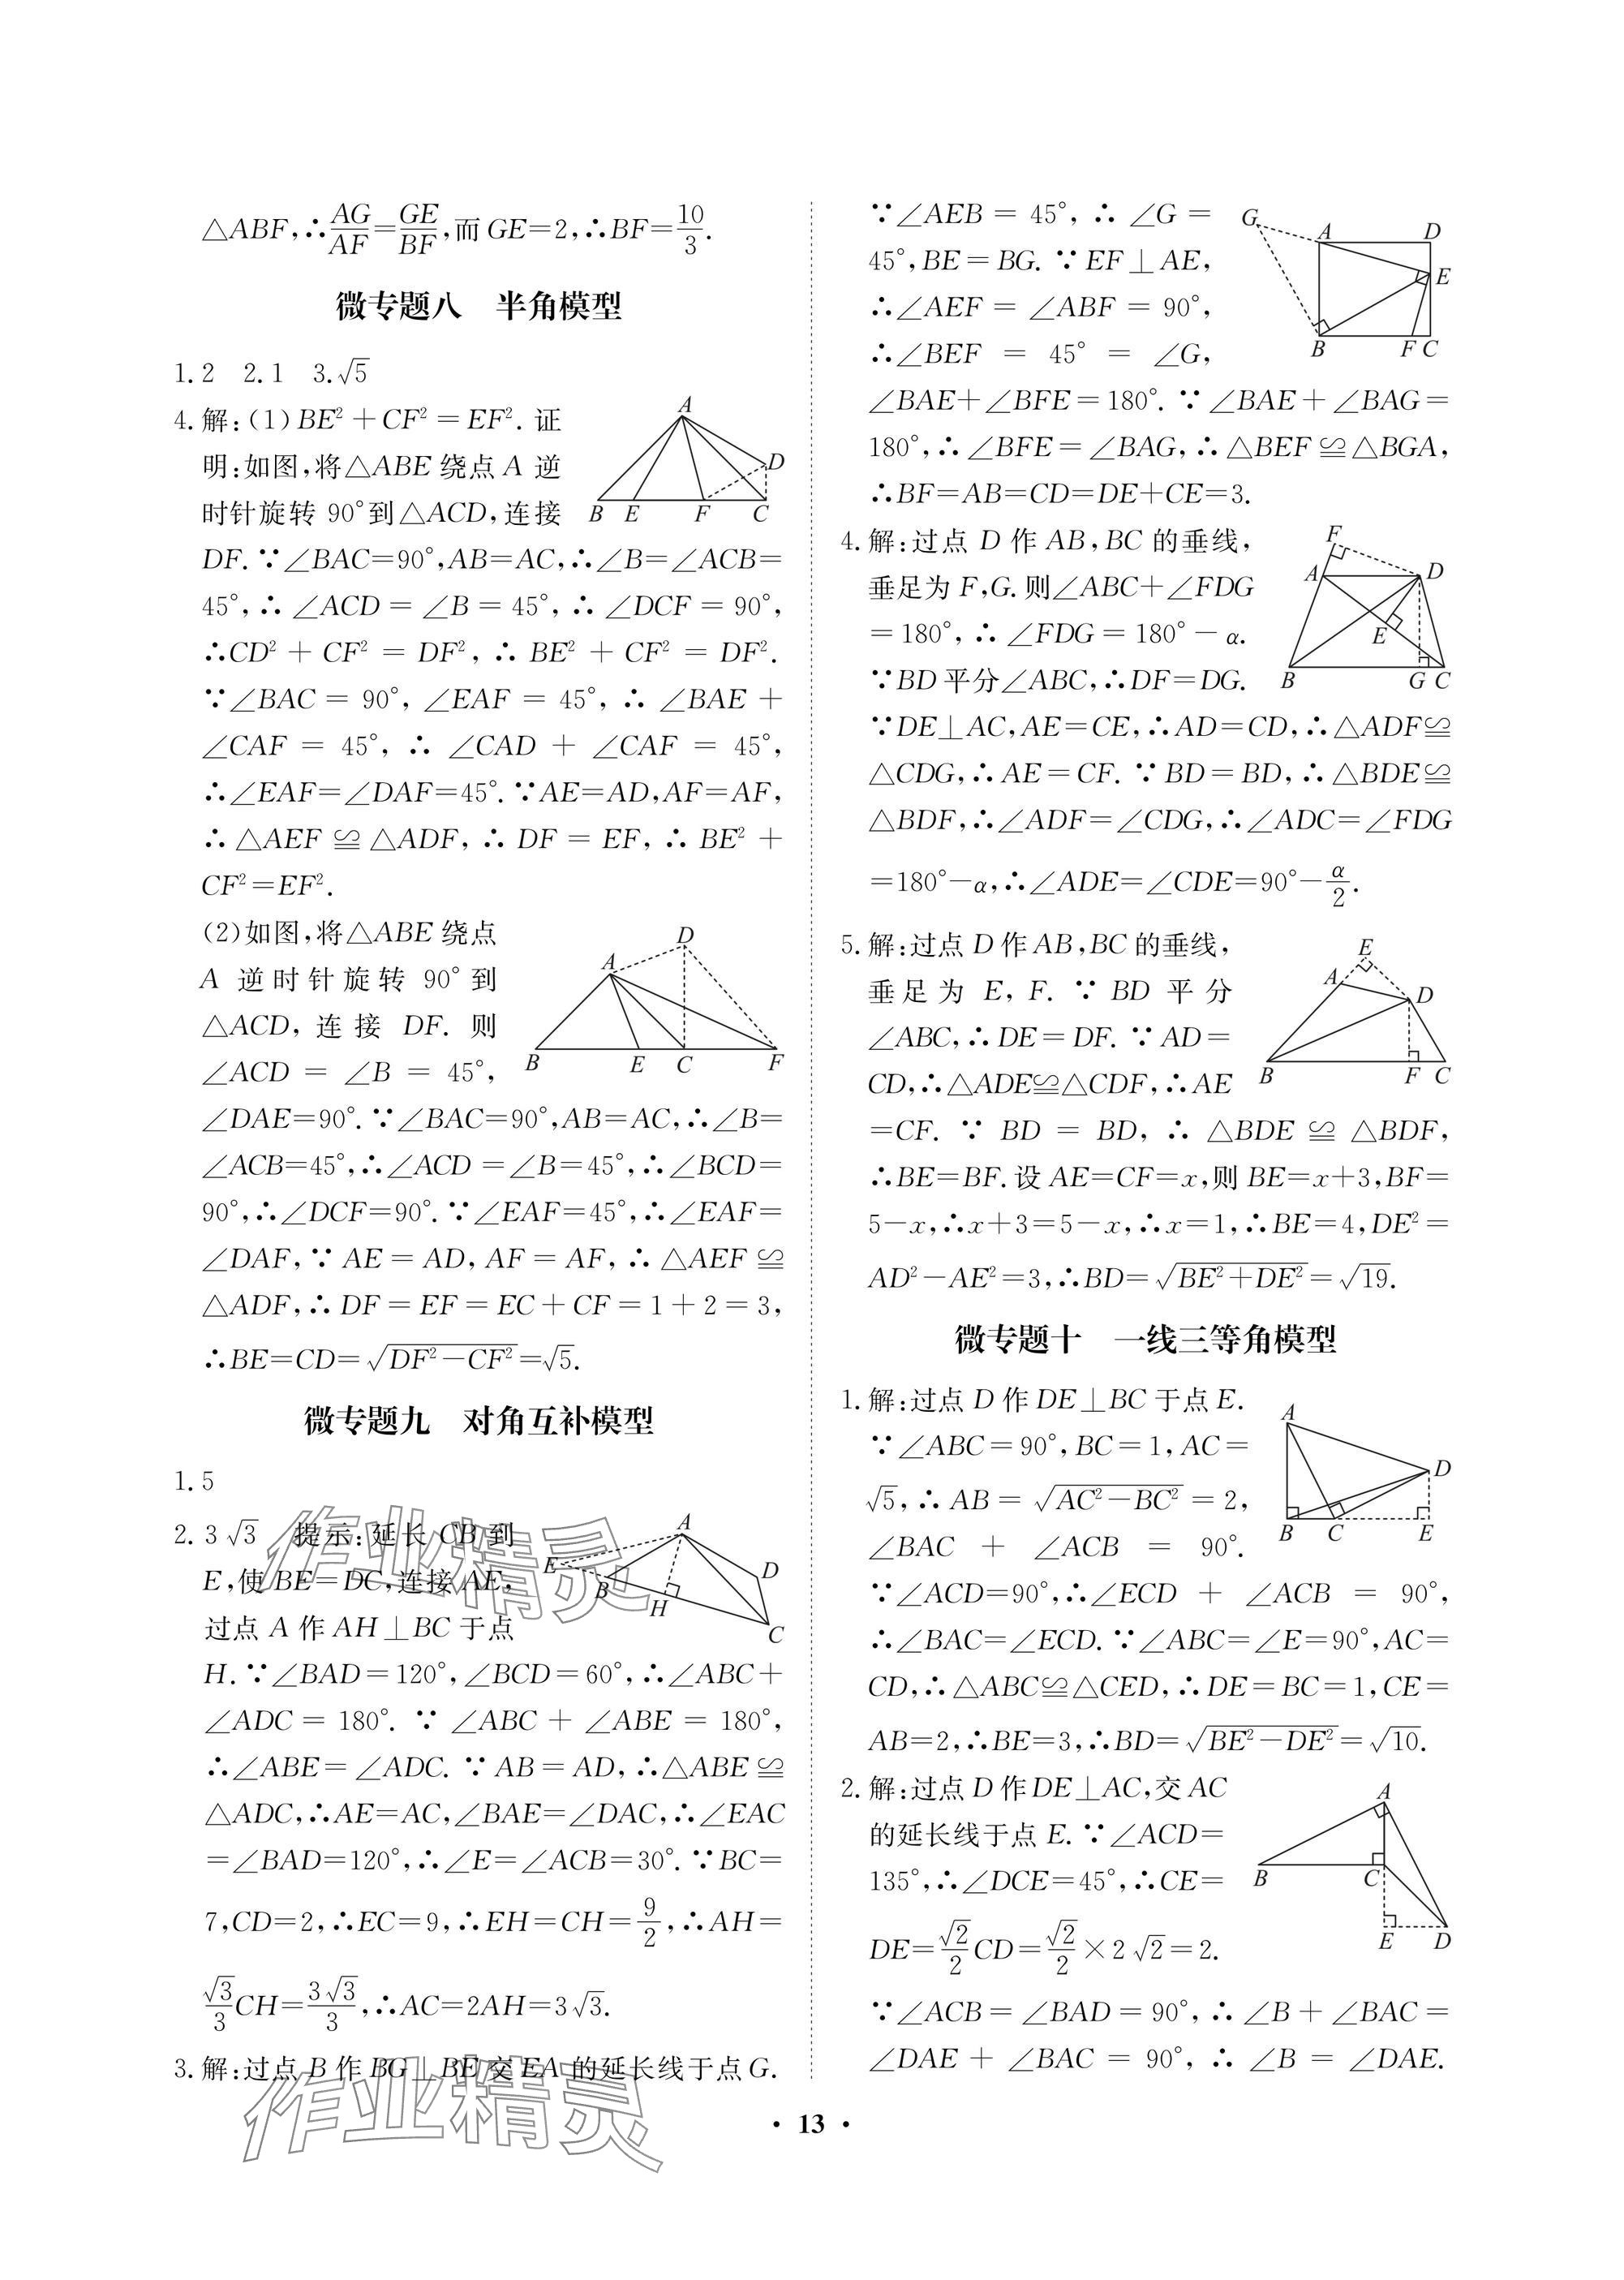 △ABF,∴AG/AF=GE/BF,而GE=2,∴BF=10/3.
微专题八 半角模型
1.2 2.1 3.√5
4.解:(1)BE²+CF²=EF². 证
明:如图,将△ABE绕点A逆
时针旋转90°到△ACD,连接
DF.∵∠BAC=90°,AB=AC,∴∠B=∠ACB=
45°,∴∠ACD=∠B=45°,∴∠DCF=90°,
∴CD²+CF²=DF²,∴BE²+CF²=DF².
∵∠BAC=90°,∠EAF=45°,∴∠BAE+
∠CAF=45°,∴∠CAD+∠CAF=45°,
∴∠EAF=∠DAF=45°.∵AE=AD,AF=AF,
∴△AEF≌△ADF,∴DF=EF,∴BE²+
CF²=EF².
A
D
B E F C
(2)如图,将△ABE绕点
A逆时针旋转90°到
△ACD,连接DF.则
∠ACD=∠B=45°,
∠DAE=90°.∵∠BAC=90°,AB=AC,∴∠B=
∠ACB=45°,∴∠ACD=∠B=45°,∴∠BCD=
90°,∴∠DCF=90°.∵∠EAF=45°,∴∠EAF=
∠DAF,∵AE=AD,AF=AF,∴△AEF≌
△ADF,∴DF=EF=EC+CF=1+2=3,
∴BE=CD=√(DF²-CF²)=√5.
D
A
B E C F
微专题九 对角互补模型
1.5
2.3√3 提示:延长CB到
E,使BE=DC,连接AE,
过点A作AH⊥BC于点
H.∵∠BAD=120°,∠BCD=60°,∴∠ABC+
∠ADC=180°.∵∠ABC+∠ABE=180°,
∴∠ABE=∠ADC.∵AB=AD,∴△ABE≌
△ADC,∴AE=AC,∠BAE=∠DAC,∴∠EAC
=∠BAD=120°,∴∠E=∠ACB=30°.∵BC=
7,CD=2,∴EC=9,∴EH=CH=9/2,∴AH=
√3/3CH=3√3/3,∴AC=2AH=3√3.
A
E
B
D
H
C
作业精灵
3.解:过点B作BG⊥BE交EA的延长线于点G.
作业精灵
∵∠AEB=45°,∴∠G=
45°,BE=BG.∵EF⊥AE,
∴∠AEF=∠ABF=90°,
∴∠BEF=45°=∠G,
∠BAE+∠BFE=180°.∵∠BAE+∠BAG=
180°,∴∠BFE=∠BAG,∴△BEF≌△BGA,
∴BF=AB=CD=DE+CE=3.
G
A D
E
B F C
4.解:过点D作AB,BC的垂线,
垂足为F,G.则∠ABC+∠FDG
=180°,∴∠FDG=180°-α.
∵BD平分∠ABC,∴DF=DG.
∵DE⊥AC,AE=CE,∴AD=CD,∴△ADF≌
△CDG,∴AE=CF.∵BD=BD,∴△BDE≌
△BDF,∴∠ADF=∠CDG,∴∠ADC=∠FDG
=180°-α,∴∠ADE=∠CDE=90°-α/2.
F
A D
E
B G C
5.解:过点D作AB,BC的垂线,
垂足为E,F.∵BD平分
∠ABC,∴DE=DF.∵AD=
CD,∴△ADE≌△CDF,∴AE
=CF.∵BD=BD,∴△BDE≌△BDF,
∴BE=BF.设AE=CF=x,则BE=x+3,BF=
5-x,∴x+3=5-x,∴x=1,∴BE=4,DE²=
AD²-AE²=3,∴BD=√(BE²+DE²)=√19.
E
A
D
B F C
微专题十 一线三等角模型
1.解:过点D作DE⊥BC于点E.
∵∠ABC=90°,BC=1,AC=
√5,∴AB=√(AC²-BC²)=2,
∠BAC+∠ACB=90°.
∵∠ACD=90°,∴∠ECD+∠ACB=90°,
∴∠BAC=∠ECD.∵∠ABC=∠E=90°,AC=
CD,∴△ABC≌△CED,∴DE=BC=1,CE=
AB=2,∴BE=3,∴BD=√(BE²-DE²)=√10.
A
D
B C E
2.解:过点D作DE⊥AC,交AC
的延长线于点E.∵∠ACD=
135°,∴∠DCE=45°,∴CE=
DE=√2/2CD=√2/2×2√2=2.
∵∠ACB=∠BAD=90°,∴∠B+∠BAC=
∠DAE+∠BAC=90°,∴∠B=∠DAE.
A
B C
E D
• 13 •